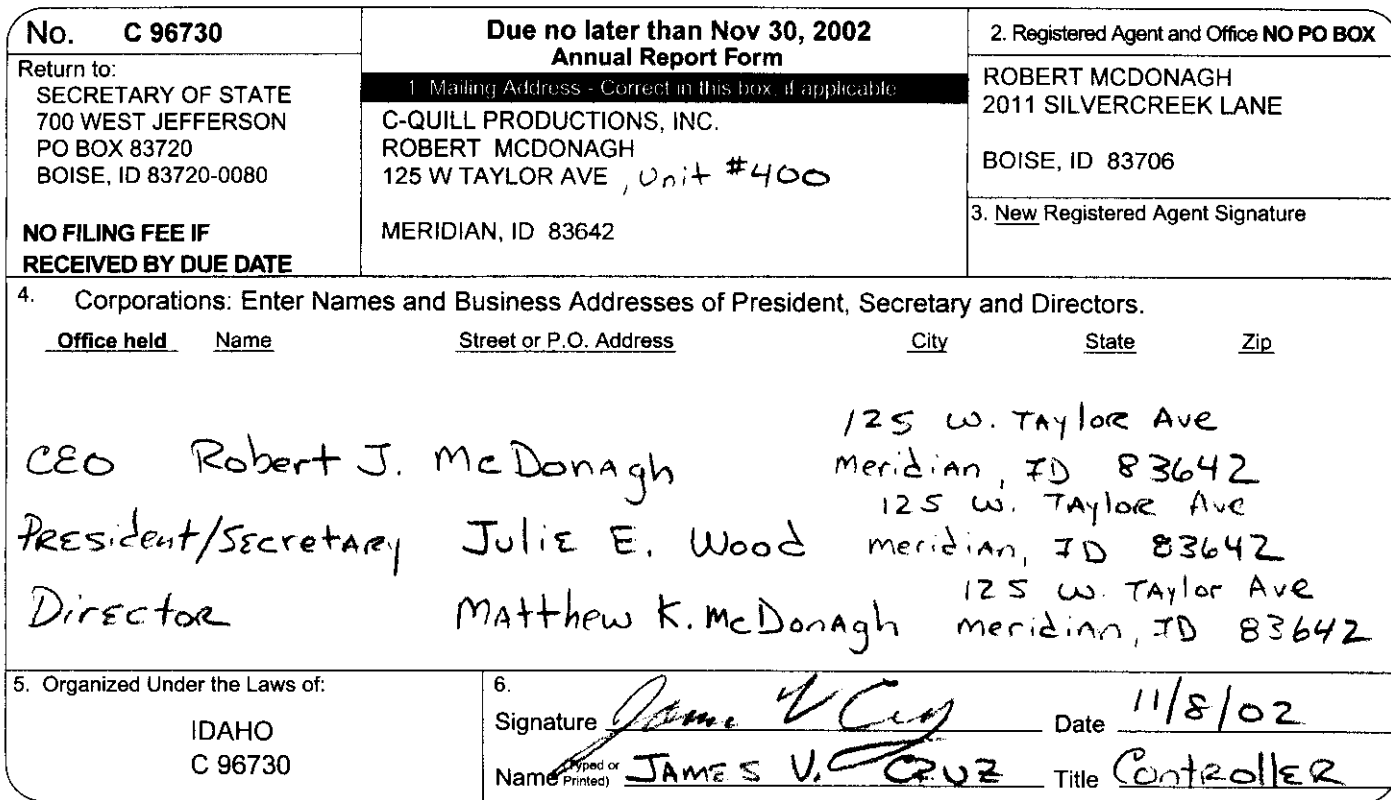 No. C 96730
Return to:
SECRETARY OF STATE
700 WEST JEFFERSON
PO BOX 83720
BOISE, ID 83720-0080
NO FILING FEE IF
RECEIVED BY DUE DATE
Due no later than Nov 30, 2002
Annual Report Form
1. Mailing Address - Correct in this box, if applicable
C-QUILL PRODUCTIONS, INC.
ROBERT MCDONAGH
125 W TAYLOR AVE , Unit #400
MERIDIAN, ID 83642
2. Registered Agent and Office NO PO BOX
ROBERT MCDONAGH
2011 SILVERCREEK LANE
BOISE, ID 83706
3. New Registered Agent Signature
4. Corporations: Enter Names and Business Addresses of President, Secretary and Directors.
Office held Name Street or P.O. Address City State Zip
125 W. Taylor Ave
CEO Robert J. McDonagh Meridian, ID 83642
125 W. Taylor Ave
President/Secretary Julie E. Wood meridian, ID 83642
125 W. Taylor Ave
Director Matthew K. McDonagh meridian, ID 83642
5. Organized Under the Laws of:
IDAHO
C 96730
6.
Signature James V Cruz Date 11/8/02
Name (Typed or Printed) JAMES V. CRUZ Title Controller